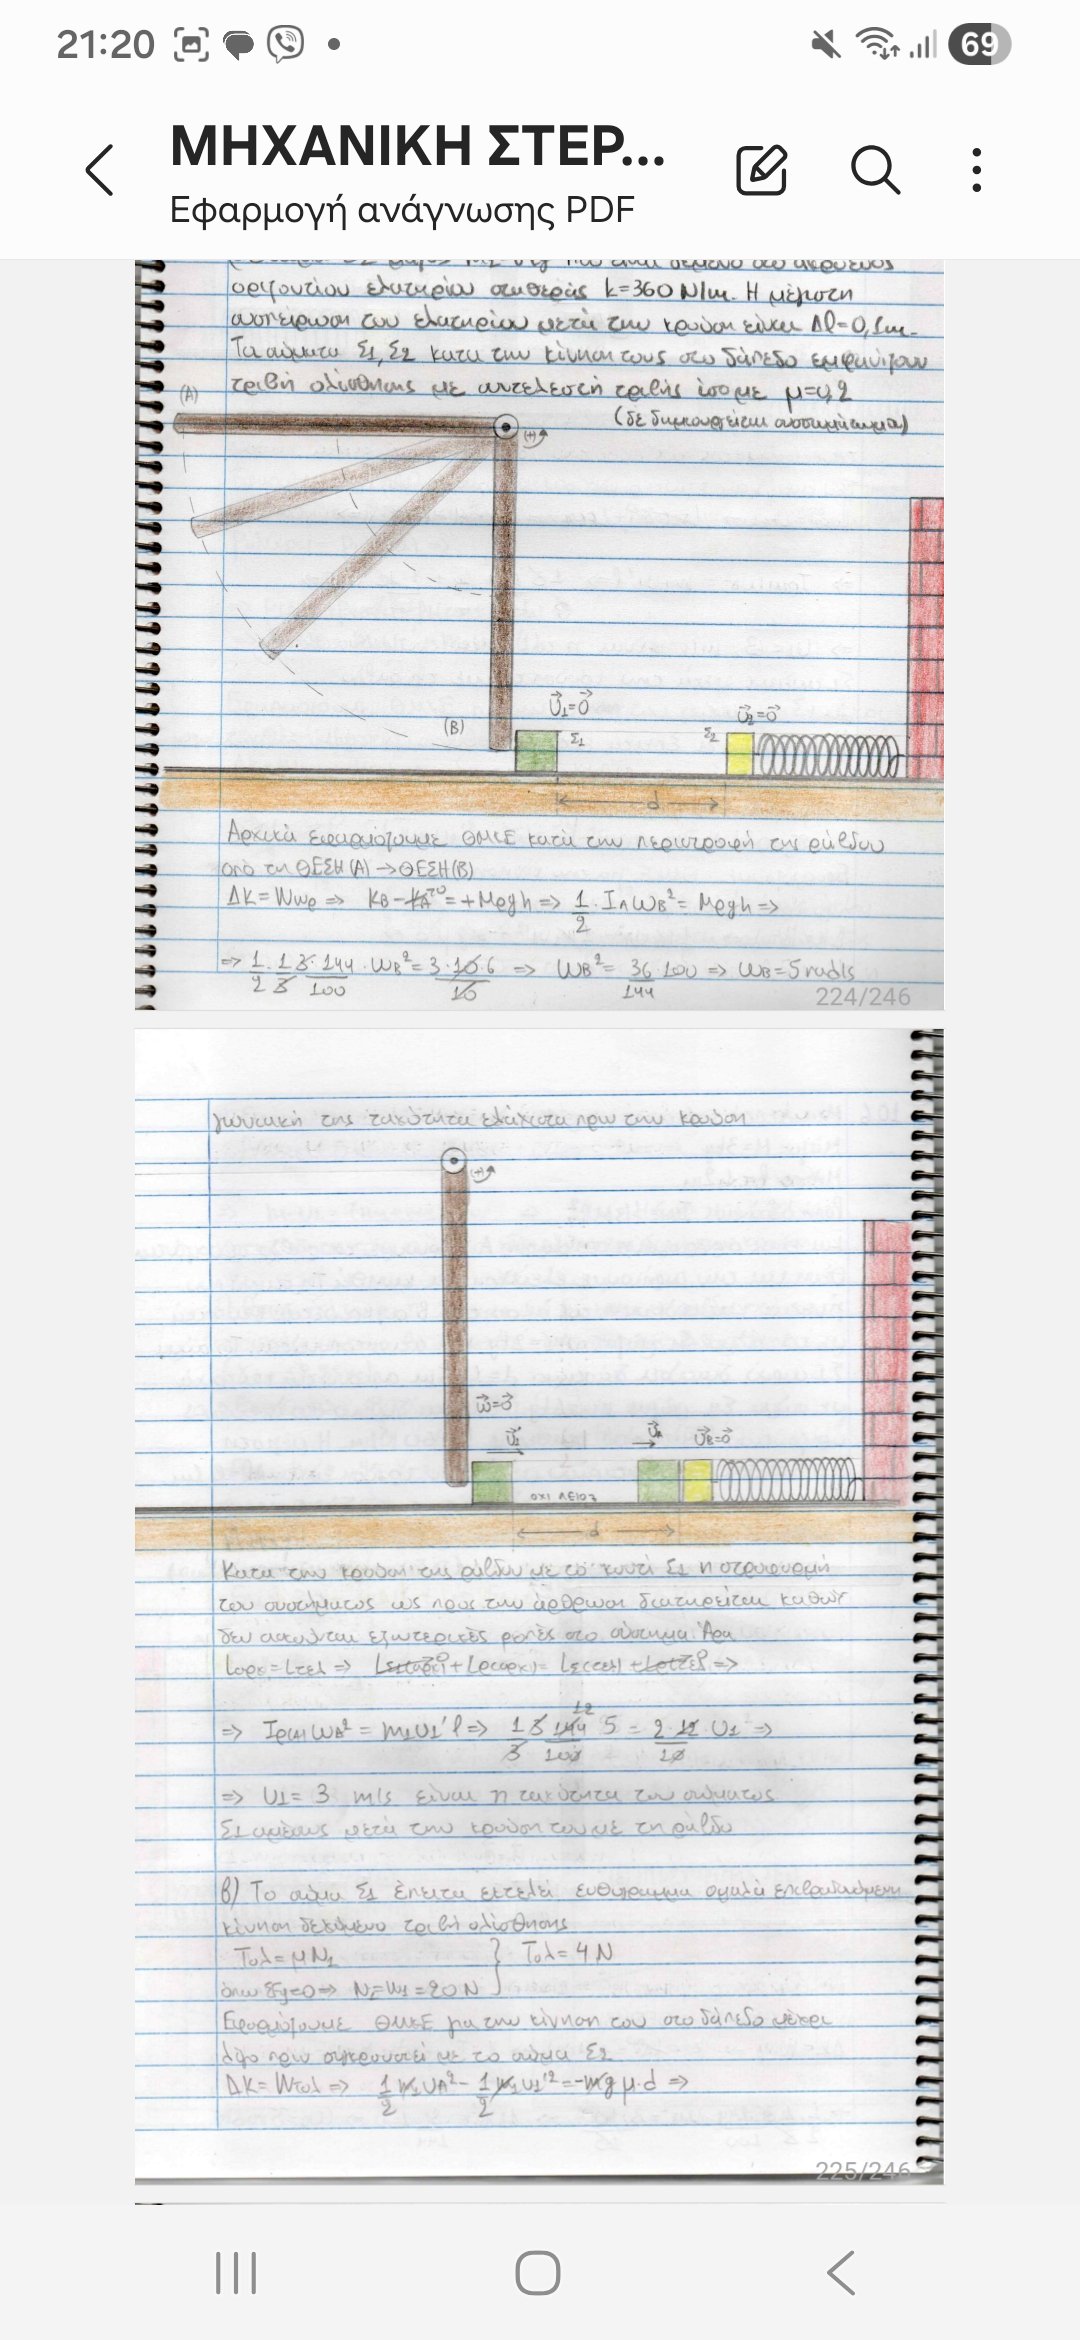 21:20
69
ΜΗΧΑΝΙΚΗ ΣΤΕΡ...
Εφαρμογή ανάγνωσης PDF
οριζοντίου ελατηρίου σταθεράς k=360 N/m. Η μέγιστη
συσπείρωση του ελατηρίου μετά την κρούση είναι Δl=0,1m.
Τα σώματα Σ1, Σ2 κατα την κίνηση τους στο δάπεδο εμφανίζουν
τριβή ολίσθησης με συντελεστή τριβής ίσο με μ=0,2
(Α)
(δε δημιουργείται συσσωμάτωμα)
(+)
U1=0
(Β)
Σ1
Σ2
U2=0
d
Αρχικά εφαρμόζουμε ΘΜΚΕ κατά την περιστροφή της ράβδου
από τη ΘΕΣΗ(Α) → ΘΕΣΗ(Β)
ΔΚ = Wwρ => KB - KA = +Mρgh => 1/2 · IΛ ωB² = Mρgh =>
=> 1/2 · 1/3 3·144/100 · ωB² = 3·10·6/10 => ωB² = 36·100/144 => ωB = 5 rad/s
224/246
γωνιακή της ταχύτητα ελάχιστα πριν την κρούση
(+)
ω=0
U1
UA
UB=0
ΟΧΙ ΛΕΙΟΣ
d
Κατα την κρούση της ράβδου με το κουτί Σ1 η στροφορμή
του συστήματος ως προς την άρθρωση διατηρείται καθώς
δεν ασκούνται εξωτερικές ροπές στο σύστημα. Άρα
Lαρχ = Lτελ => LΣ1(αρχ) + Lρ(αρχ) = LΣ(τελ) + Lρ(τελ) =>
=> Iρ(Λ) ωΑ² = m1U1' l => 1/3 3 144/100 5 = 2·12/10 · U1 =>
=> U1 = 3 m/s είναι η ταχύτητα του σώματος
Σ1 αμέσως μετά την κρούση του με τη ράβδο
β) Το σώμα Σ1 έπειτα εκτελεί ευθύγραμμα ομαλά επιβραδυνόμενη
κίνηση δεχόμενο τριβή ολίσθησης
Τολ = μN1 } Τολ = 4 N
όπου ΣFy=0 => N1=W1=20N
Εφαρμόζουμε ΘΜΚΕ για την κίνηση του στο δάπεδο μέχρι
λίγο πριν συγκρουστεί με το σώμα Σ2
ΔΚ = Wτολ => 1/2 m1UA² - 1/2 m1U1'² = -mg μ·d =>
225/246